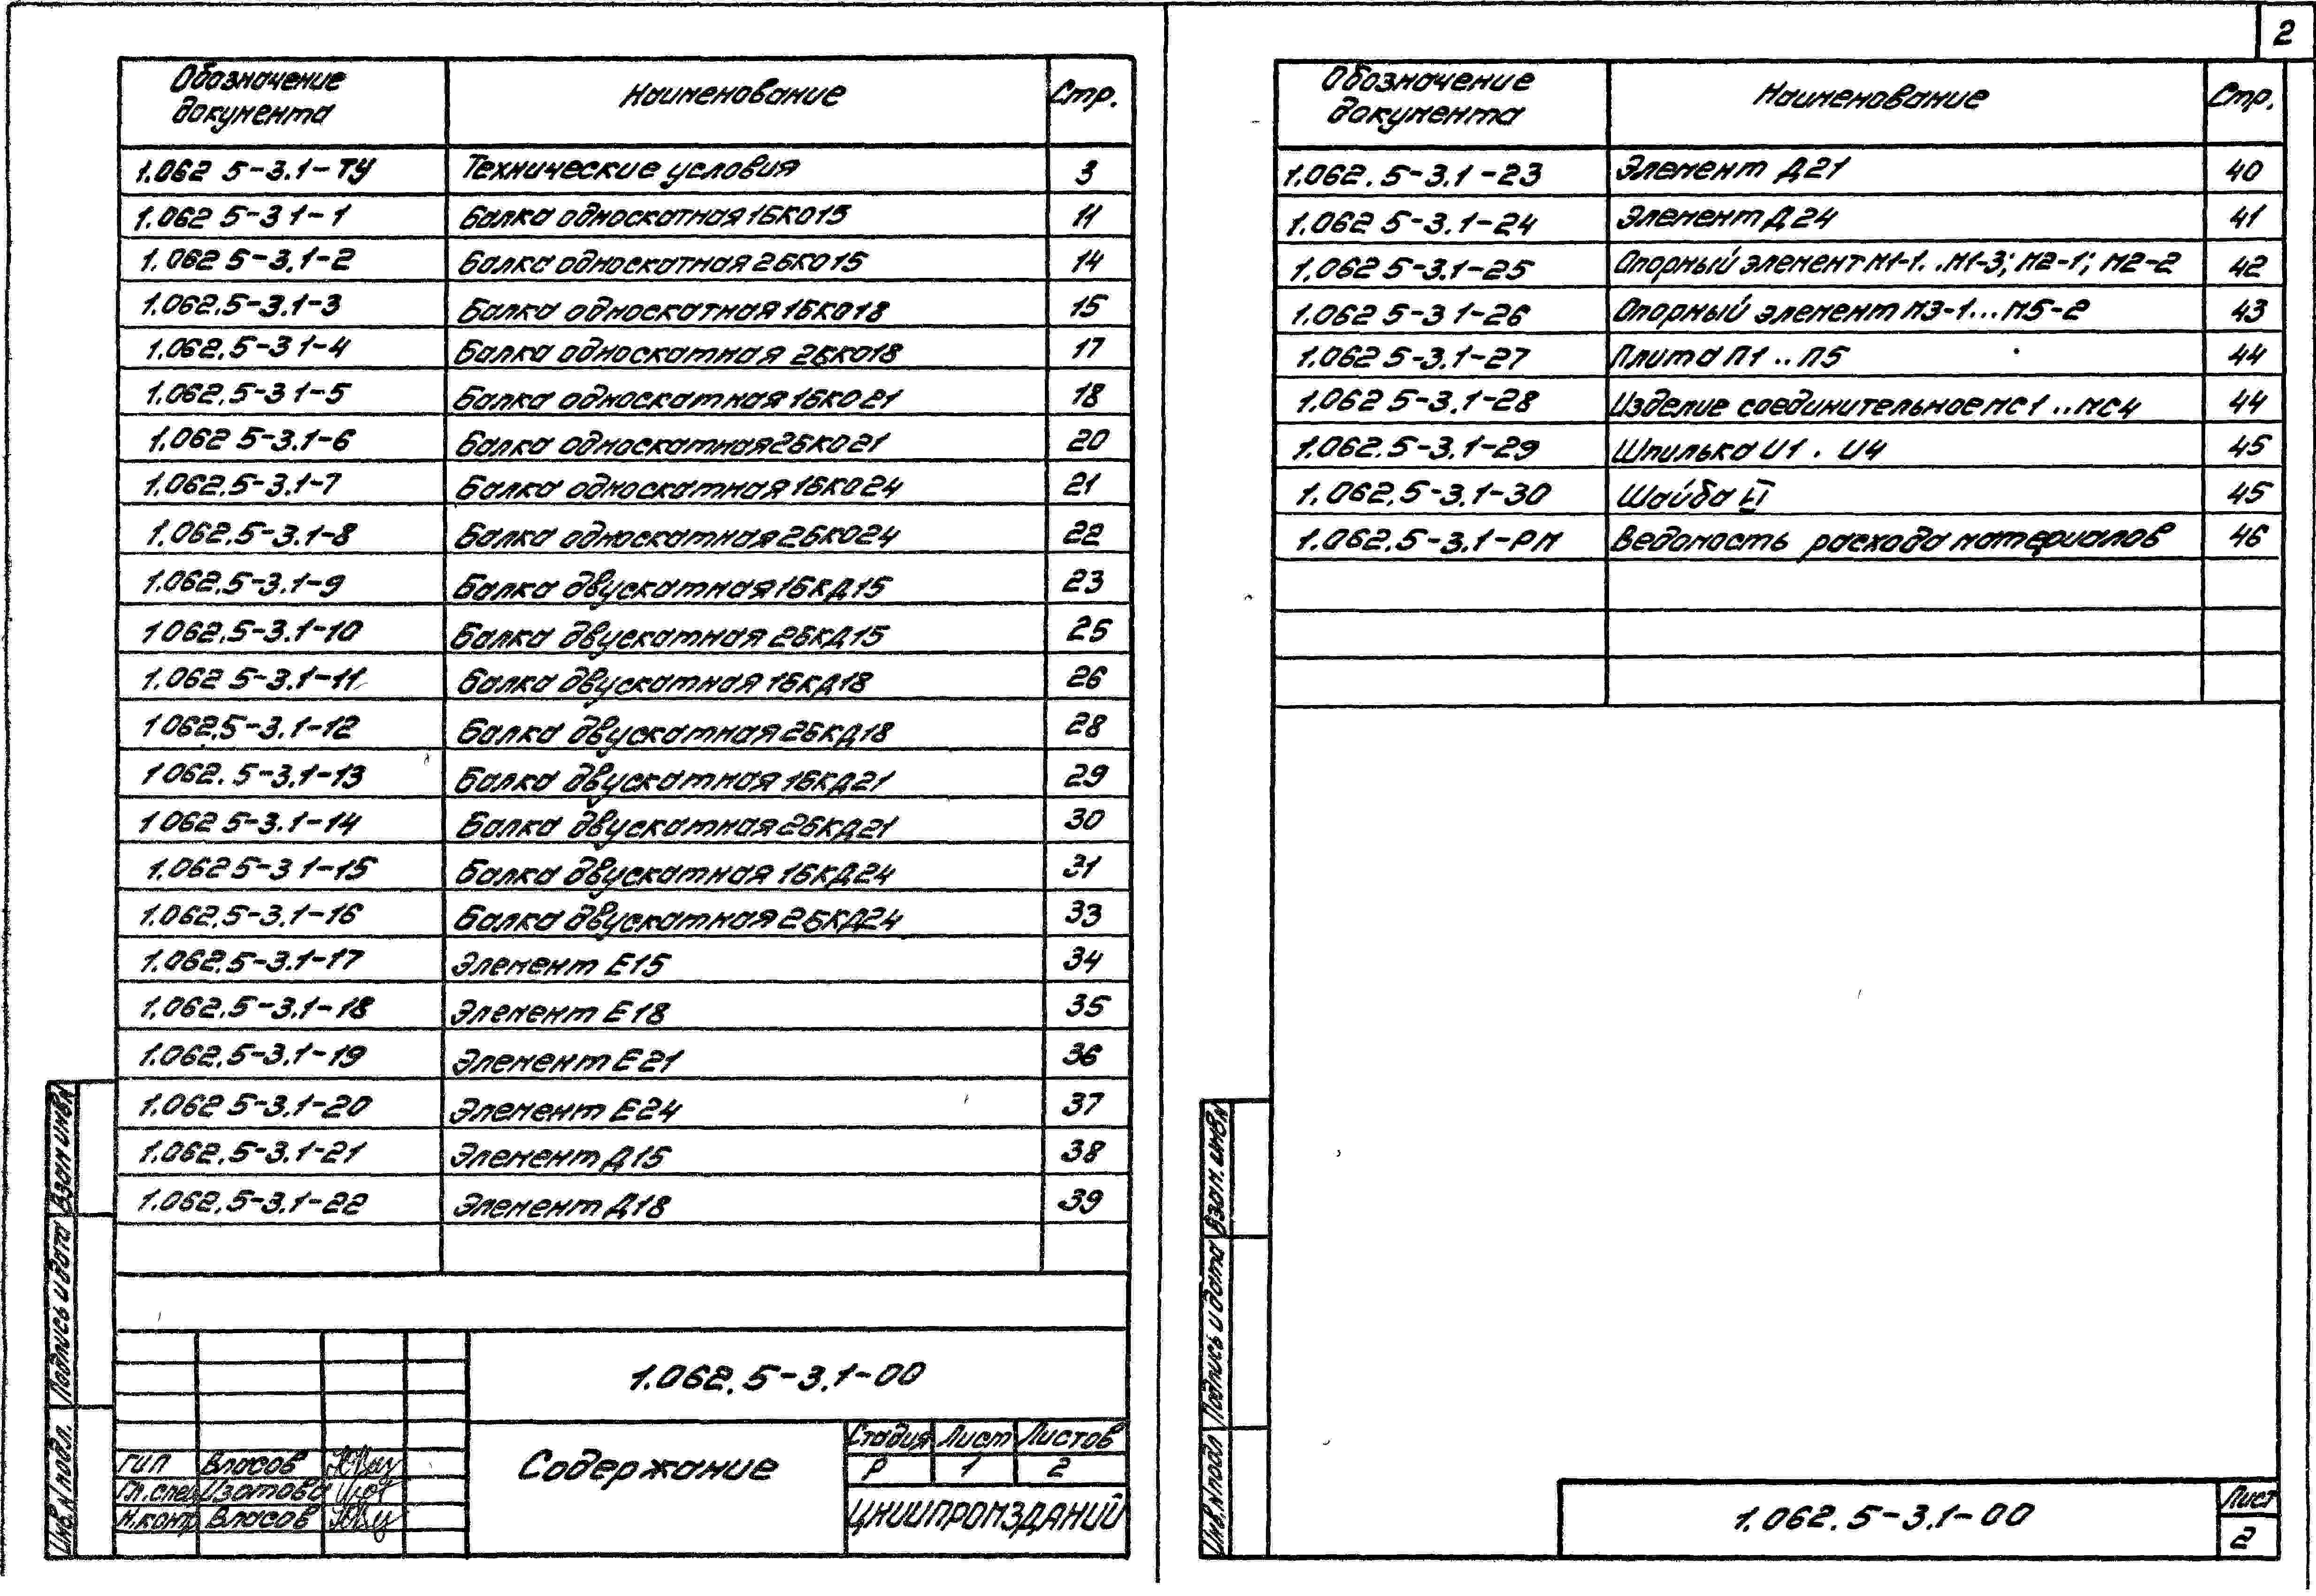 2
Обозначение документа Наименование Стр.
1.062 5-3.1-ТУ Технические условия 3
1.062 5-3 1-1 Балка односкатная 1БКО15 11
1.062 5-3.1-2 Балка односкатная 2БКО15 14
1.062.5-3.1-3 Балка односкатная 1БКО18 15
1.062.5-3 1-4 Балка односкатная 2БКО18 17
1.062.5-3 1-5 Балка односкатная 1БКО21 18
1.062 5-3.1-6 Балка односкатная 2БКО21 20
1.062.5-3.1-7 Балка односкатная 1БКО24 21
1.062.5-3.1-8 Балка односкатная 2БКО24 22
1.062.5-3.1-9 Балка двускатная 1БКД15 23
1 062.5-3.1-10 Балка двускатная 2БКД15 25
1.062 5-3.1-11 Балка двускатная 1БКД18 26
1 062.5-3.1-12 Балка двускатная 2БКД18 28
1 062. 5-3.1-13 Балка двускатная 1БКД21 29
1 062 5-3.1-14 Балка двускатная 2БКД21 30
1.062 5-3 1-15 Балка двускатная 1БКД24 31
1.062.5-3.1-16 Балка двускатная 2БКД24 33
1.062.5-3.1-17 Элемент Е15 34
1.062.5-3.1-18 Элемент Е18 35
1.062.5-3.1-19 Элемент Е21 36
1.062 5-3.1-20 Элемент Е24 37
1.062.5-3.1-21 Элемент Д15 38
1.062.5-3.1-22 Элемент Д18 39
1.062.5-3.1-00
Содержание
Стадия Лист Листов
Р 1 2
ЦНИИПРОМЗДАНИЙ
ГИП Власов
Гл.спец Изотова
Н.контр Власов
Инв.N подл. Подпись и дата Взам инв.N
Обозначение документа Наименование Стр.
1.062.5-3.1-23 Элемент Д21 40
1.062 5-3.1-24 Элемент Д24 41
1.062 5-3.1-25 Опорный элемент М1-1..М1-3; М2-1; М2-2 42
1.062 5-3 1-26 Опорный элемент М3-1...М5-2 43
1.062 5-3.1-27 Плита П1 .. П5 44
1.062 5-3.1-28 Изделие соединительное МС1 ..МС4 44
1.062.5-3.1-29 Шпилька Ш1 . Ш4 45
1.062.5-3.1-30 Шайба 45
1.062.5-3.1-РМ Ведомость расхода материалов 46
Инв.N подл Подпись и дата Взам. инв.N
1.062.5-3.1-00
Лист
2